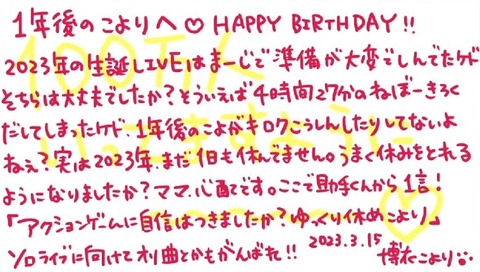 1年後のこよりへ♡ HAPPY BIRTHDAY!!
2023年の生誕LIVEはまーじで準備が大変でしんでたケド
そちらは大丈夫でしたか?そういえば4時間27分のねぼーきろく
だしてしまったケド、1年後のこよがキロクこうしんしたりしてないよ
ねぇ?実は2023年、まだ1日も休んでません。うまく休みをとれる
ようになりましたか?ママ、心配です。ここで助手くんから1言!
「アクションゲームに自信はつきましたか?ゆっくり休めこより」
ソロライブに向けてオリ曲とかもがんばれ!!
2023.3.15 博衣こより